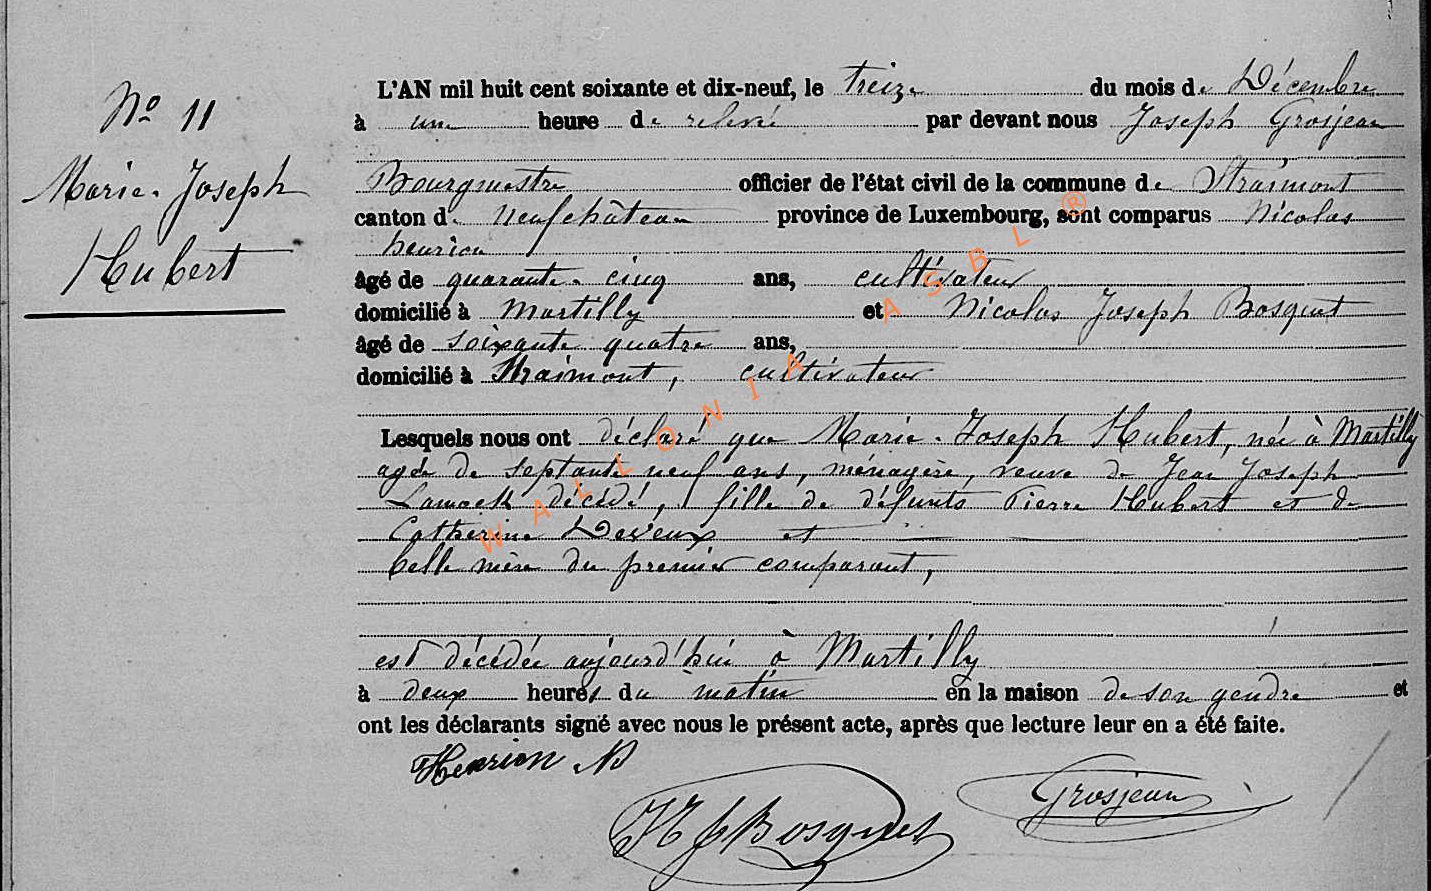 No 11
Marie-Joseph
Hubert
L'AN mil huit cent soixante et dix-neuf, le treize du mois de Décembre
à une heure de relevée par devant nous Joseph Grosjean
Bourgmestre officier de l'état civil de la commune de Straimont
canton de Neufchâteau province de Luxembourg, sont comparus Nicolas
henrion
âgé de quarante-cinq ans, cultivateur
domicilié à Martilly et Nicolas Joseph Bosquet
âgé de soixante quatre ans,
domicilié à Straimont, cultivateur
Lesquels nous ont déclaré que Marie-Joseph Hubert, née à Martilly
agée de septante neuf ans, ménagère, veuve de Jean Joseph
décédé, fille de défunts Pierre Hubert et de
Catherine Deveux et
belle mère du premier comparant,
est décédée aujourd'hui à Martilly
à deux heures du matin en la maison de son gendre et
ont les déclarants signé avec nous le présent acte, après que lecture leur en a été faite.
Henrion N
Grosjean
NJBosquet
WALLONIA ASBL ®